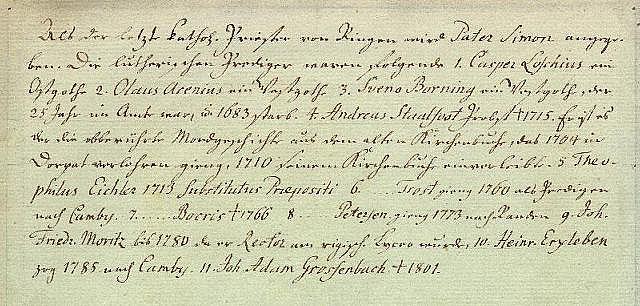 Als der letzte kathol. Priester von Ringen wird Pater Simon angege-
ben. Die lutherischen Prediger waren folgende 1. Casper Loschius ein
Ostgothe 2. Olaus Arenius ein Vestgoth 3. Sveno Borning ein Vestgoth, der
25 Jahr im Amte war, u 1683 starb. 4 Andreas Probst † 1715. Er ist es
der die oberwehnte Mordgeschichte aus dem alten Kirchenbuche, das 1704 in
Dorpat verlohren gieng, 1710 seinem Kirchenbuche einverleibte. 5 Theo-
philus Eichler 1713 Substitutus Præpositi 6 ..... Trost gieng 1760 als Prediger
nach Camby. 7 ..... Bocris † 1766 8 ..... Petersen, gieng 1773 nach Randen 9. Joh.
Friedr. Moritz bis 1780 da er Rector am rigisch. Lyceo wurde, 10. Heinr. Erxleben
zog 1785 nach Camby. 11. Joh Adam Grossenbach † 1801.